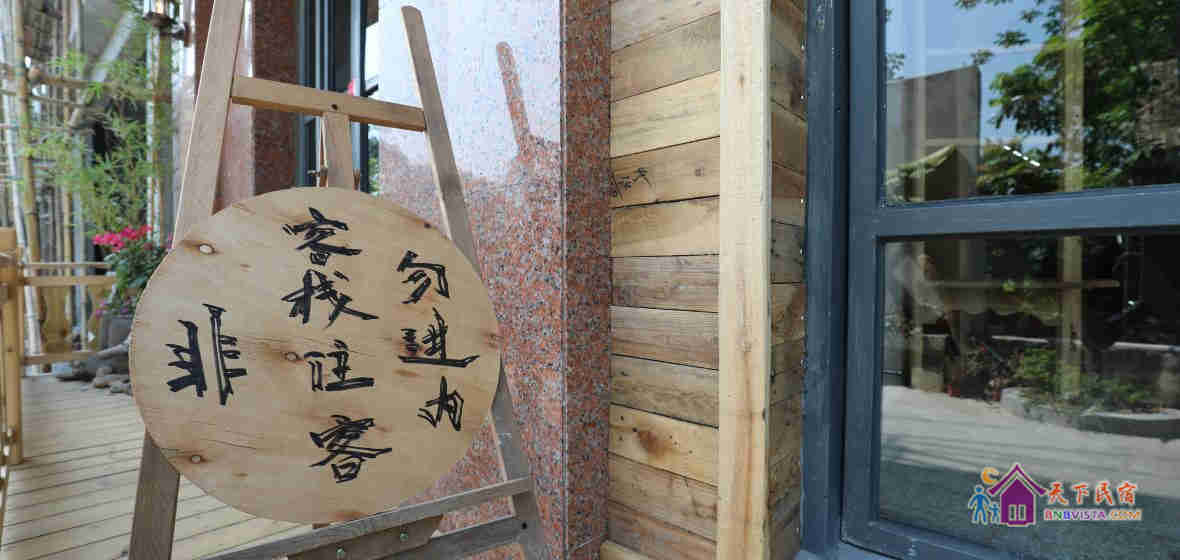 非
客栈住客
勿進内
天下民宿
BNBVISTA.COM